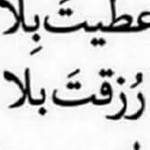 عطيتَ بِلا
رُزقتَ بلا